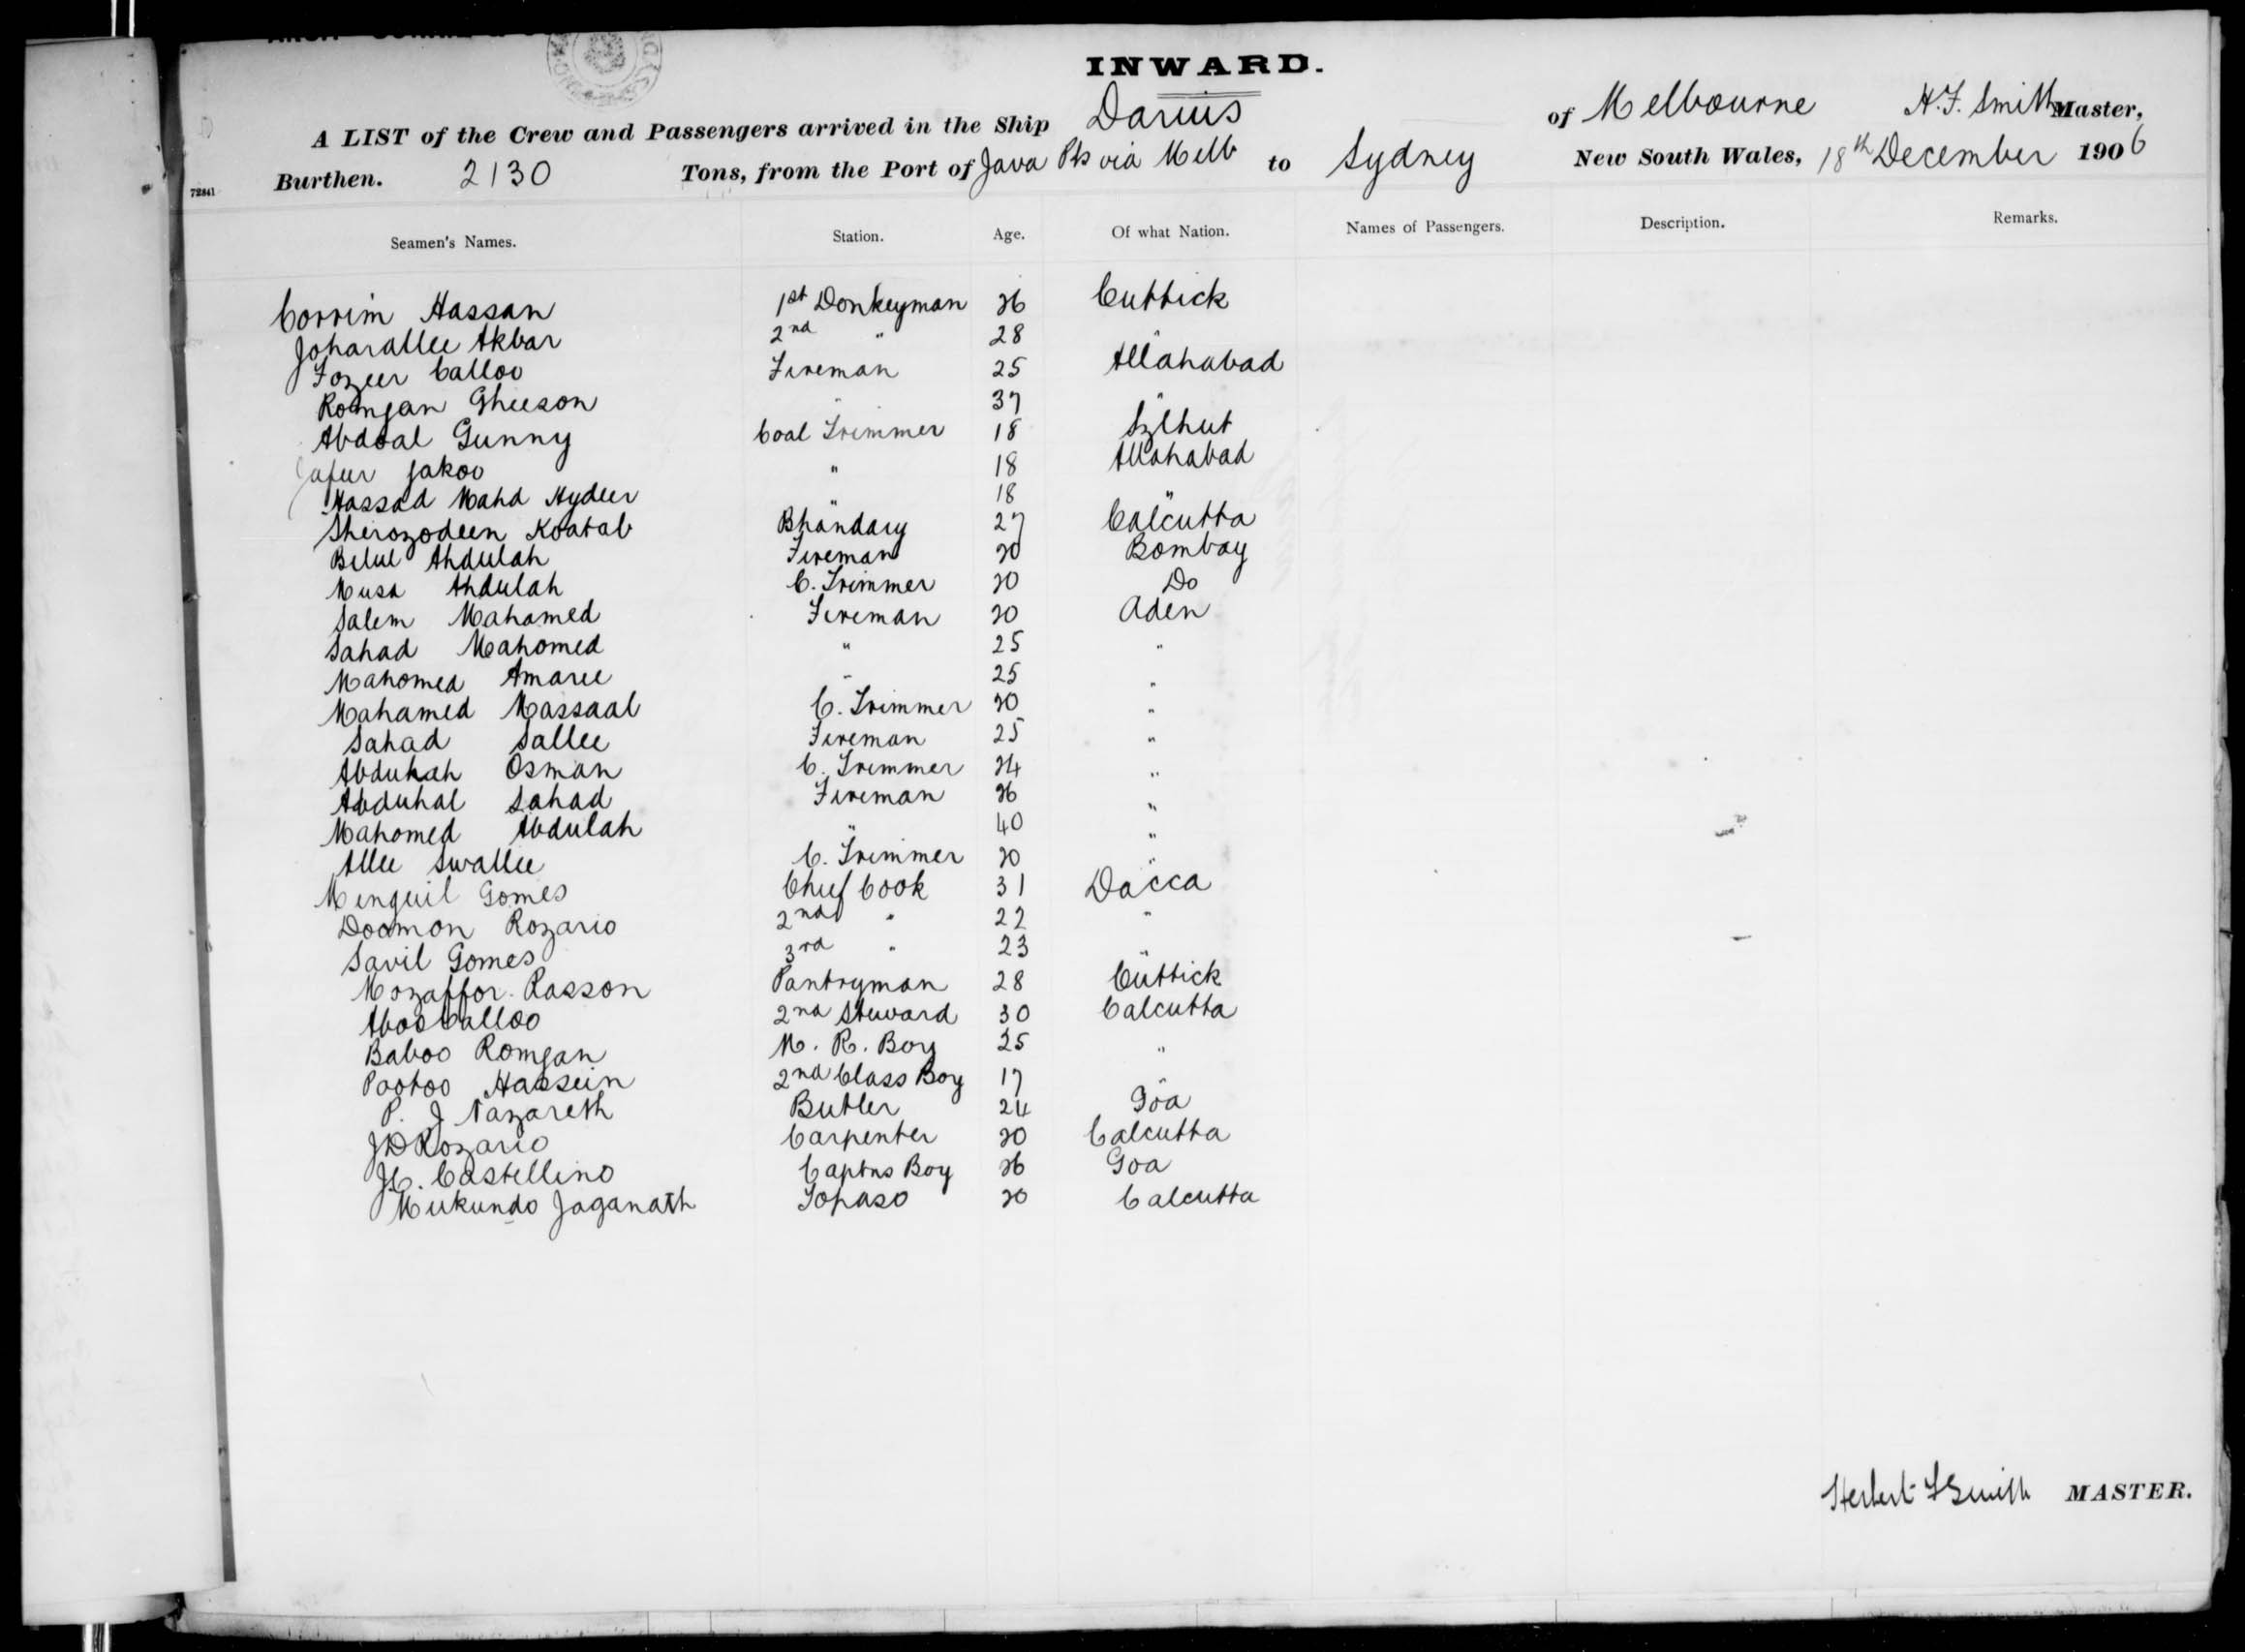 INWARD.
A LIST of the Crew and Passengers arrived in the Ship Darius of Melbourne H.F. Smith Master,
Burthen. 2130 Tons, from the Port of Java Pts via Melb to Sydney New South Wales, 18th December 1906
72841
Seamen's Names. Station. Age. Of what Nation. Names of Passengers. Description. Remarks.
Corrim Hassan 1st Donkeyman 26 Cuttick
Joharallee Akbar 2nd " 28 "
Fozeer Calloo Fireman 25 Allahabad
Romjan Gheeson " 37 "
Abdoal Gunny Coal Trimmer 18 Sylhut
Jafur Jakoo " 18 Allahabad
Hassad Mahd Hydeer " 18 "
Sherozodeen Koatab Bhandary 27 Calcutta
Belul Abdulah Fireman 20 Bombay
Musa Abdulah C. Trimmer 20 Do
Salem Mahamed Fireman 20 Aden
Sahad Mahomed " 25 "
Mahomed Amaree " 25 "
Mahamed Massaal C. Trimmer 20 "
Sahad Sallee Fireman 25 "
Abdukah Osman C. Trimmer 24 "
Abduhal Sahad Fireman 26 "
Mahomed Abdulah " 40 "
Allee Swallee C. Trimmer 20 "
Menguil Gomes Chief Cook 31 Dacca
Doomon Rozario 2nd " 22 "
Savil Gomes 3rd " 23 "
Mozaffor Rasson Pantryman 28 Cuttick
Aboo Calloo 2nd Steward 30 Calcutta
Baboo Romjan M. R. Boy 25 "
Pootoo Hassein 2nd Class Boy 17 "
P. J Nazareth Butler 24 Goa
J D Rozario Carpenter 20 Calcutta
J C. Castellino Captns Boy 26 Goa
Mukundo Jaganath Topaso 20 Calcutta
Herbert F Smith MASTER.